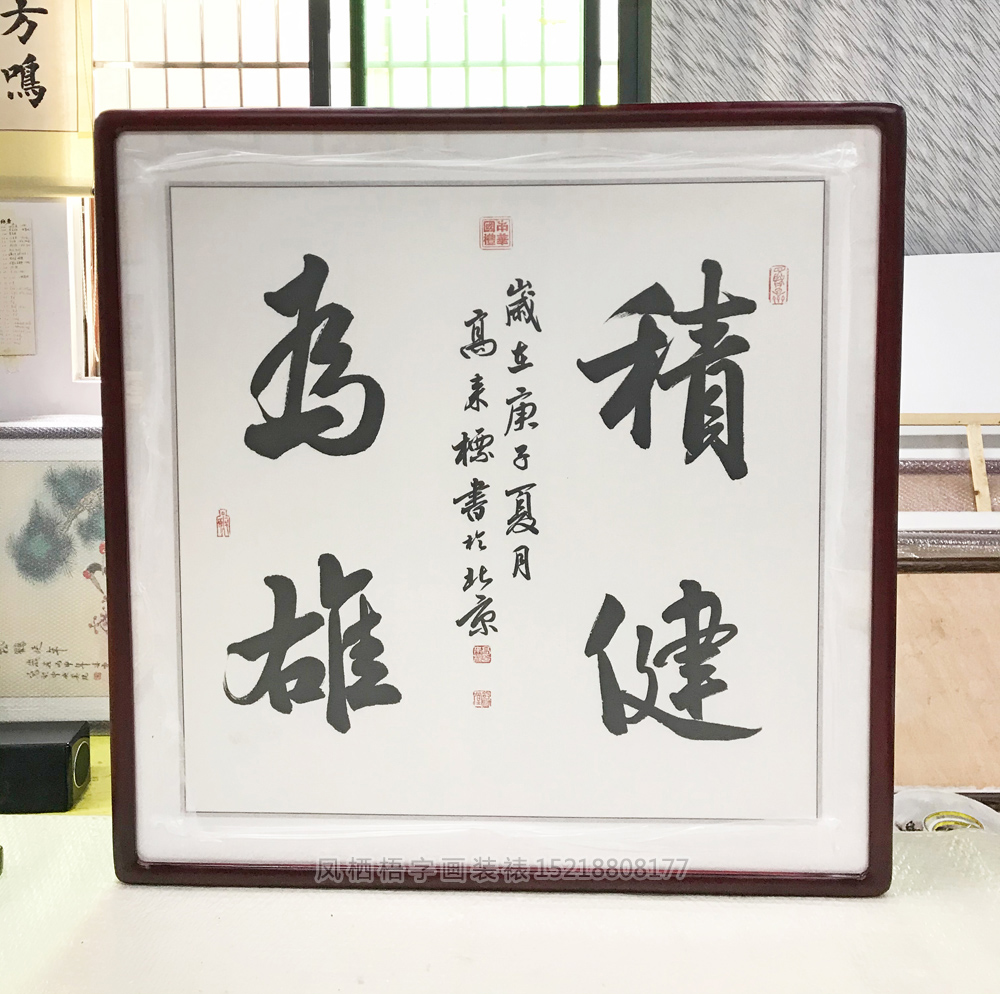 積健
為雄
歲在庚子夏月
高來標書於北京
方鳴
凤栖梧字画装裱15218808177